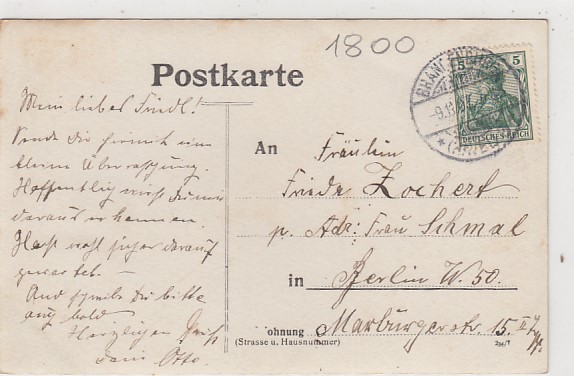 1800
Postkarte
Mein liebes Friedl!
Sende Dir hiermit eine
kleine Überraschung.
Hoffentlich wirst Du mich
daraus erkennen.
Hast wohl sicher darauf
gewartet. —
Und schreibe Du bitte
auch bald
Herzlichen Gruß
Dein Otto.
5 5
DEUTSCHES REICH
An
Fräulein
Friede Zochert
p. Adr: Frau Schmal
in Berlin W. 50.
Wohnung Marburgerstr. 15. II
(Strasse u. Hausnummer)